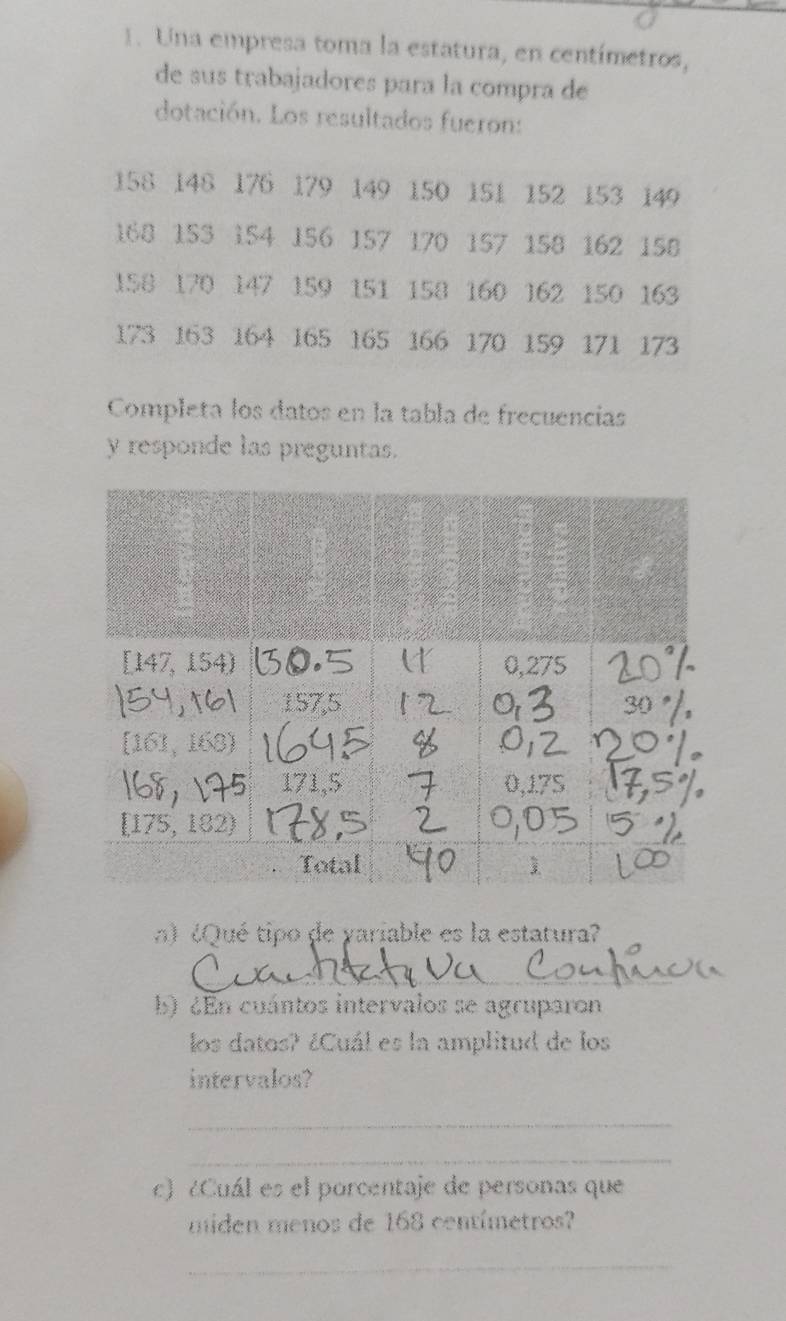 1. Una empresa toma la estatura, en centímetros,
de sus trabajadores para la compra de
dotación. Los resultados fueron:
158 148 176 179 149 150 151 152 153 149
168 153 154 156 157 170 157 158 162 158
158 170 147 159 151 158 160 162 150 163
173 163 164 165 165 166 170 159 171 173
Completa los datos en la tabla de frecuencias
y responde las preguntas.
Intervalo Marca Frecuencia absoluta Frecuencia relativa %
[147, 154) 150.5 11 0,275 20%
154,161 157,5 12 0,3 30 %.
[161, 168) 164,5 8 0,2 20%.
168, 175 171,5 7 0,175 17,5%.
[175, 182) 178,5 2 0,05 5 %
Total 40 1 100
a) ¿Qué tipo de variable es la estatura?
Cuantitativa Continua
b) ¿En cuántos intervalos se agruparon
los datos? ¿Cuál es la amplitud de los
intervalos?
c) ¿Cuál es el porcentaje de personas que
miden menos de 168 centímetros?